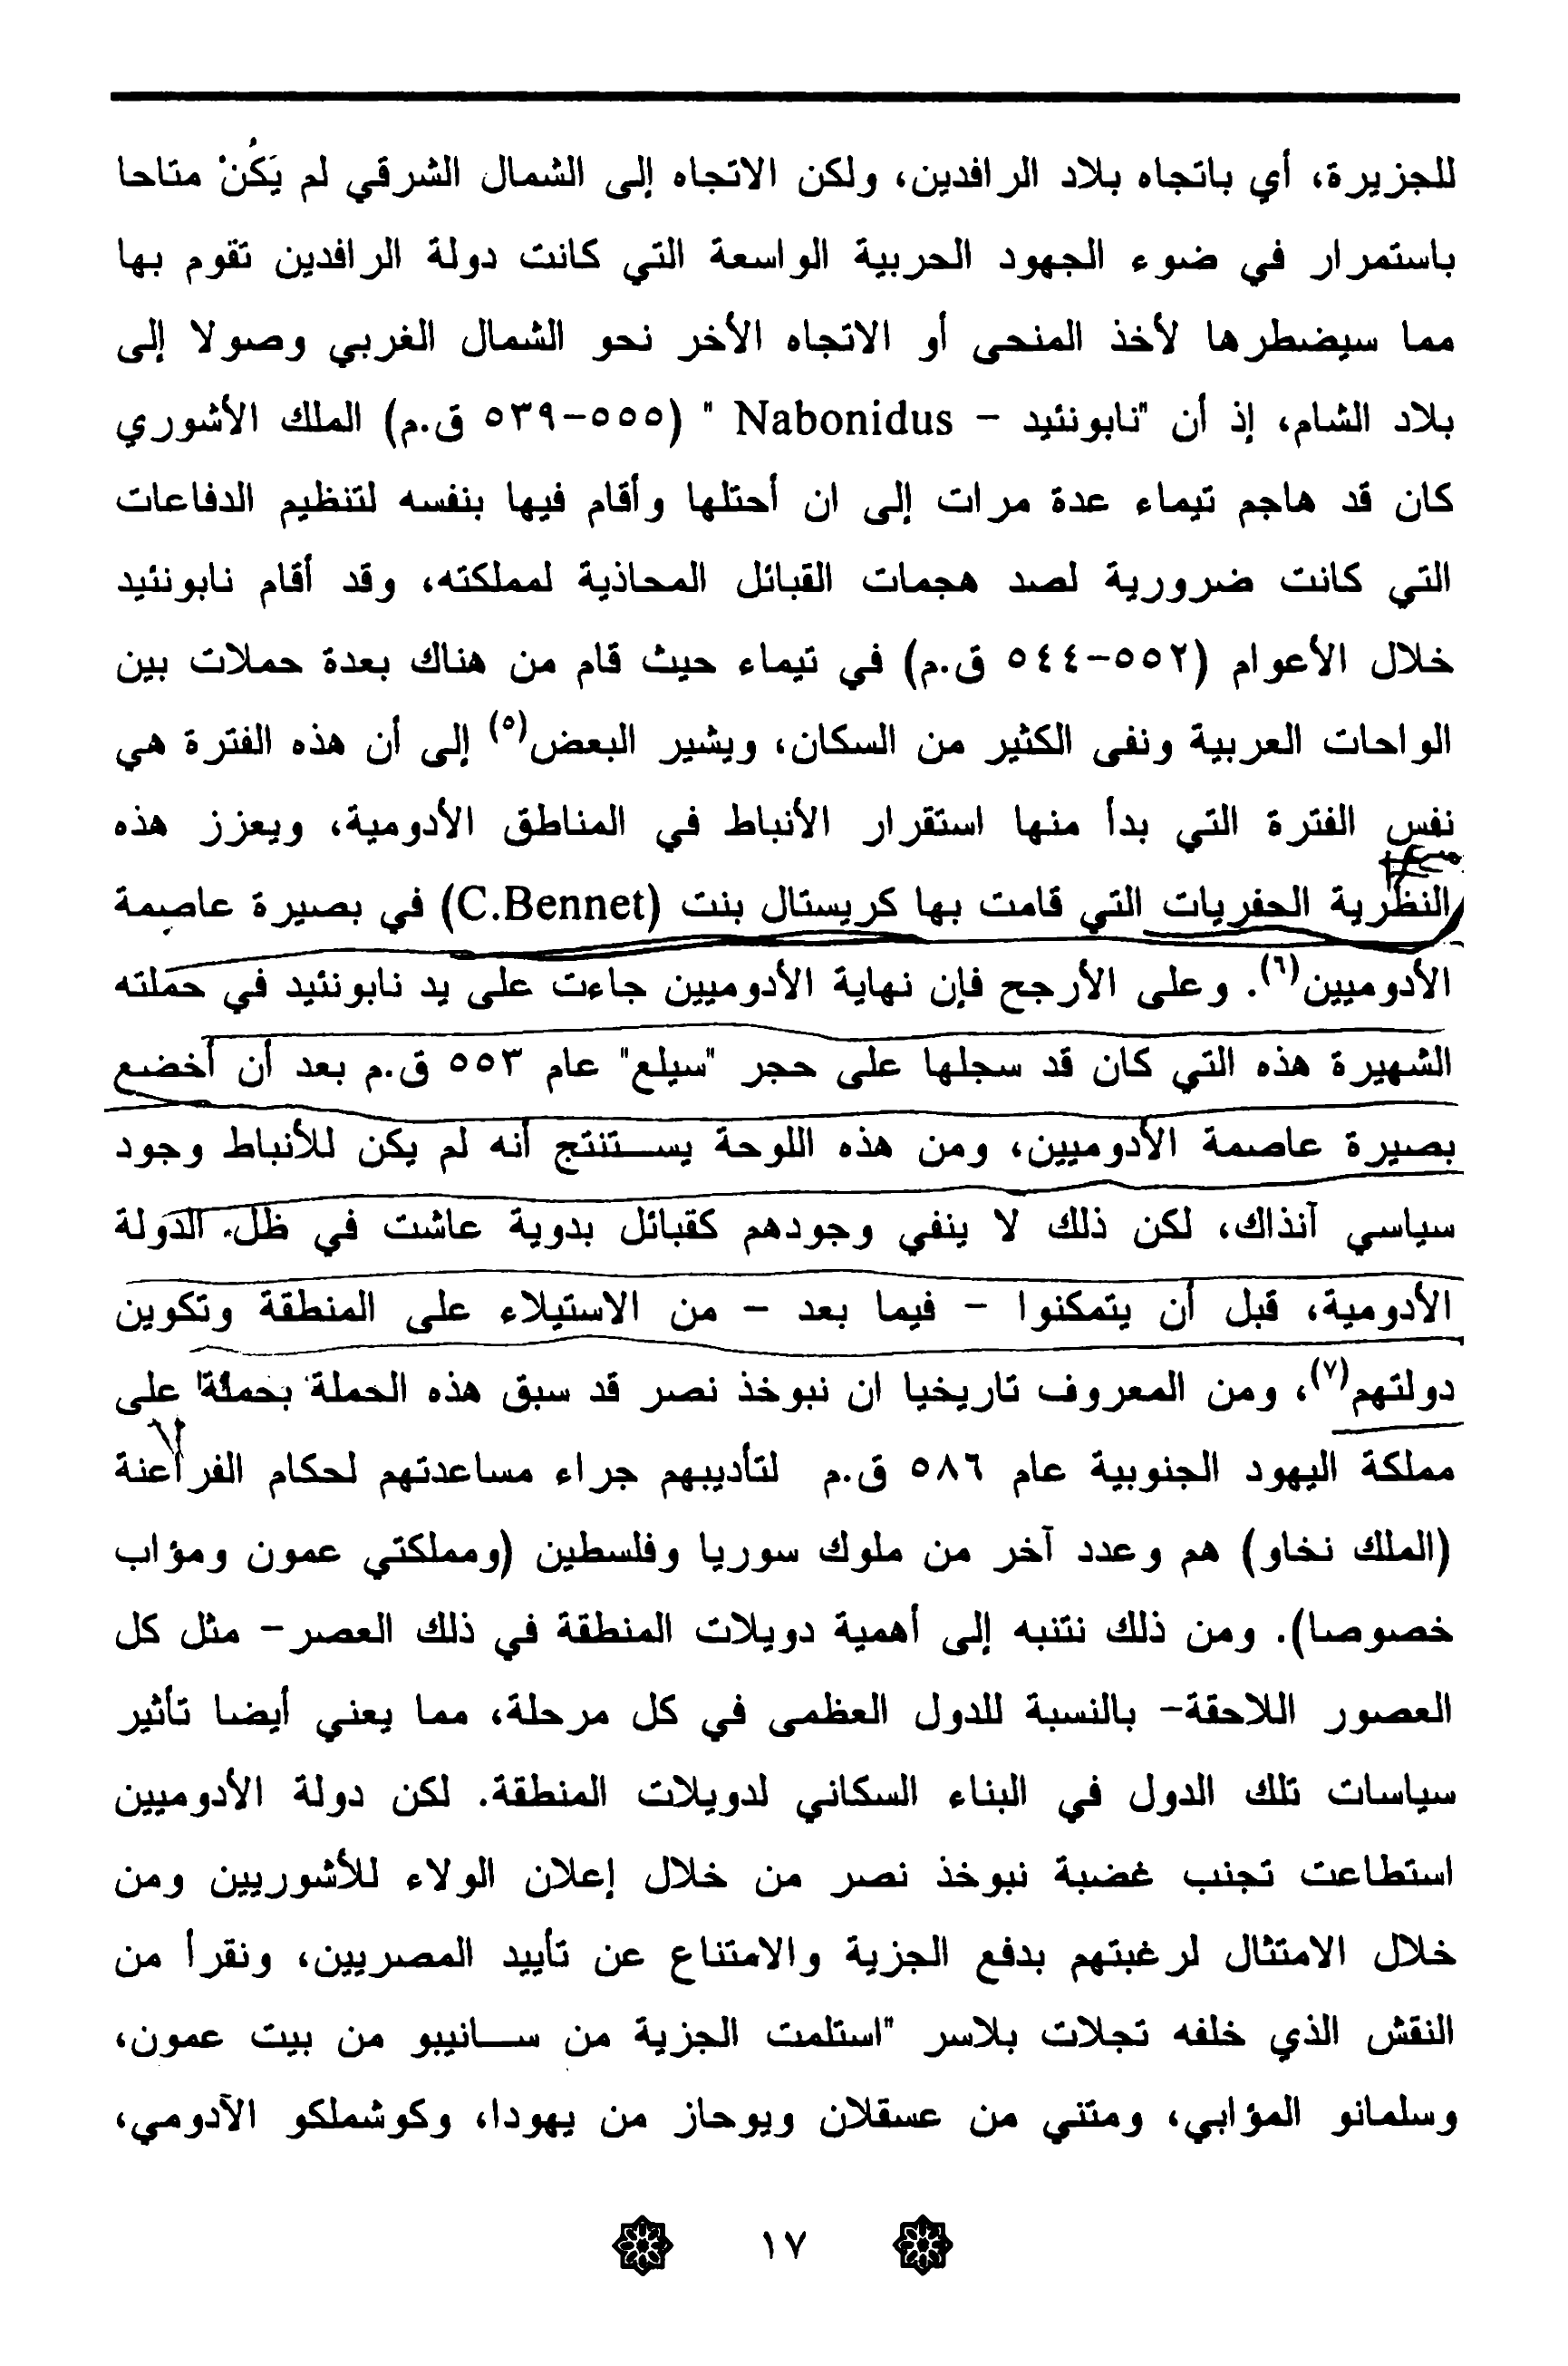 للجزيرة، أي باتجاه بلاد الرافدين، ولكن الاتجاه إلى الشمال الشرقي لم يَكُنْ متاحا
باستمرار في ضوء الجهود الحربية الواسعة التي كانت دولة الرافدين تقوم بها
مما سيضطرها لأخذ المنحى أو الاتجاه الأخر نحو الشمال الغربي وصولا إلى
بلاد الشام، إذ أن "نابونئيد – Nabonidus " (٥٥٥–٥٣٩ ق.م) الملك الأشوري
كان قد هاجم تيماء عدة مرات إلى ان أحتلها وأقام فيها بنفسه لتنظيم الدفاعات
التي كانت ضرورية لصد هجمات القبائل المحاذية لمملكته، وقد أقام نابونئيد
خلال الأعوام (٥٥٢–٥٤٤ ق.م) في تيماء حيث قام من هناك بعدة حملات بين
الواحات العربية ونفى الكثير من السكان، ويشير البعض(٥) إلى أن هذه الفترة هي
نفس الفترة التي بدأ منها استقرار الأنباط في المناطق الأدومية، ويعزز هذه
النظرية الحفريات التي قامت بها كريستال بنت (C.Bennet) في بصيرة عاصمة
الأدوميين(٦). وعلى الأرجح فإن نهاية الأدوميين جاءت على يد نابونئيد في حملته
الشهيرة هذه التي كان قد سجلها على حجر "سيلع" عام ٥٥٣ ق.م بعد أن أخضع
بصيرة عاصمة الأدوميين، ومن هذه اللوحة يســتنتج أنه لم يكن للأنباط وجود
سياسي آنذاك، لكن ذلك لا ينفي وجودهم كقبائل بدوية عاشت في ظل الدولة
الأدومية، قبل أن يتمكنوا – فيما بعد – من الاستيلاء على المنطقة وتكوين
دولتهم(٧)، ومن المعروف تاريخيا ان نبوخذ نصر قد سبق هذه الحملة بحملة على
مملكة اليهود الجنوبية عام ٥٨٦ ق.م لتأديبهم جراء مساعدتهم لحكام الفراعنة
(الملك نخاو) هم وعدد آخر من ملوك سوريا وفلسطين (ومملكتي عمون ومؤاب
خصوصا). ومن ذلك نتنبه إلى أهمية دويلات المنطقة في ذلك العصر– مثل كل
العصور اللاحقة– بالنسبة للدول العظمى في كل مرحلة، مما يعني أيضا تأثير
سياسات تلك الدول في البناء السكاني لدويلات المنطقة. لكن دولة الأدوميين
استطاعت تجنب غضبة نبوخذ نصر من خلال إعلان الولاء للأشوريين ومن
خلال الامتثال لرغبتهم بدفع الجزية والامتناع عن تأييد المصريين، ونقرأ من
النقش الذي خلفه تجلات بلاسر "استلمت الجزية من ســانيبو من بيت عمون،
وسلمانو المؤابي، ومتني من عسقلان ويوحاز من يهودا، وكوشملكو الآدومي،
١٧